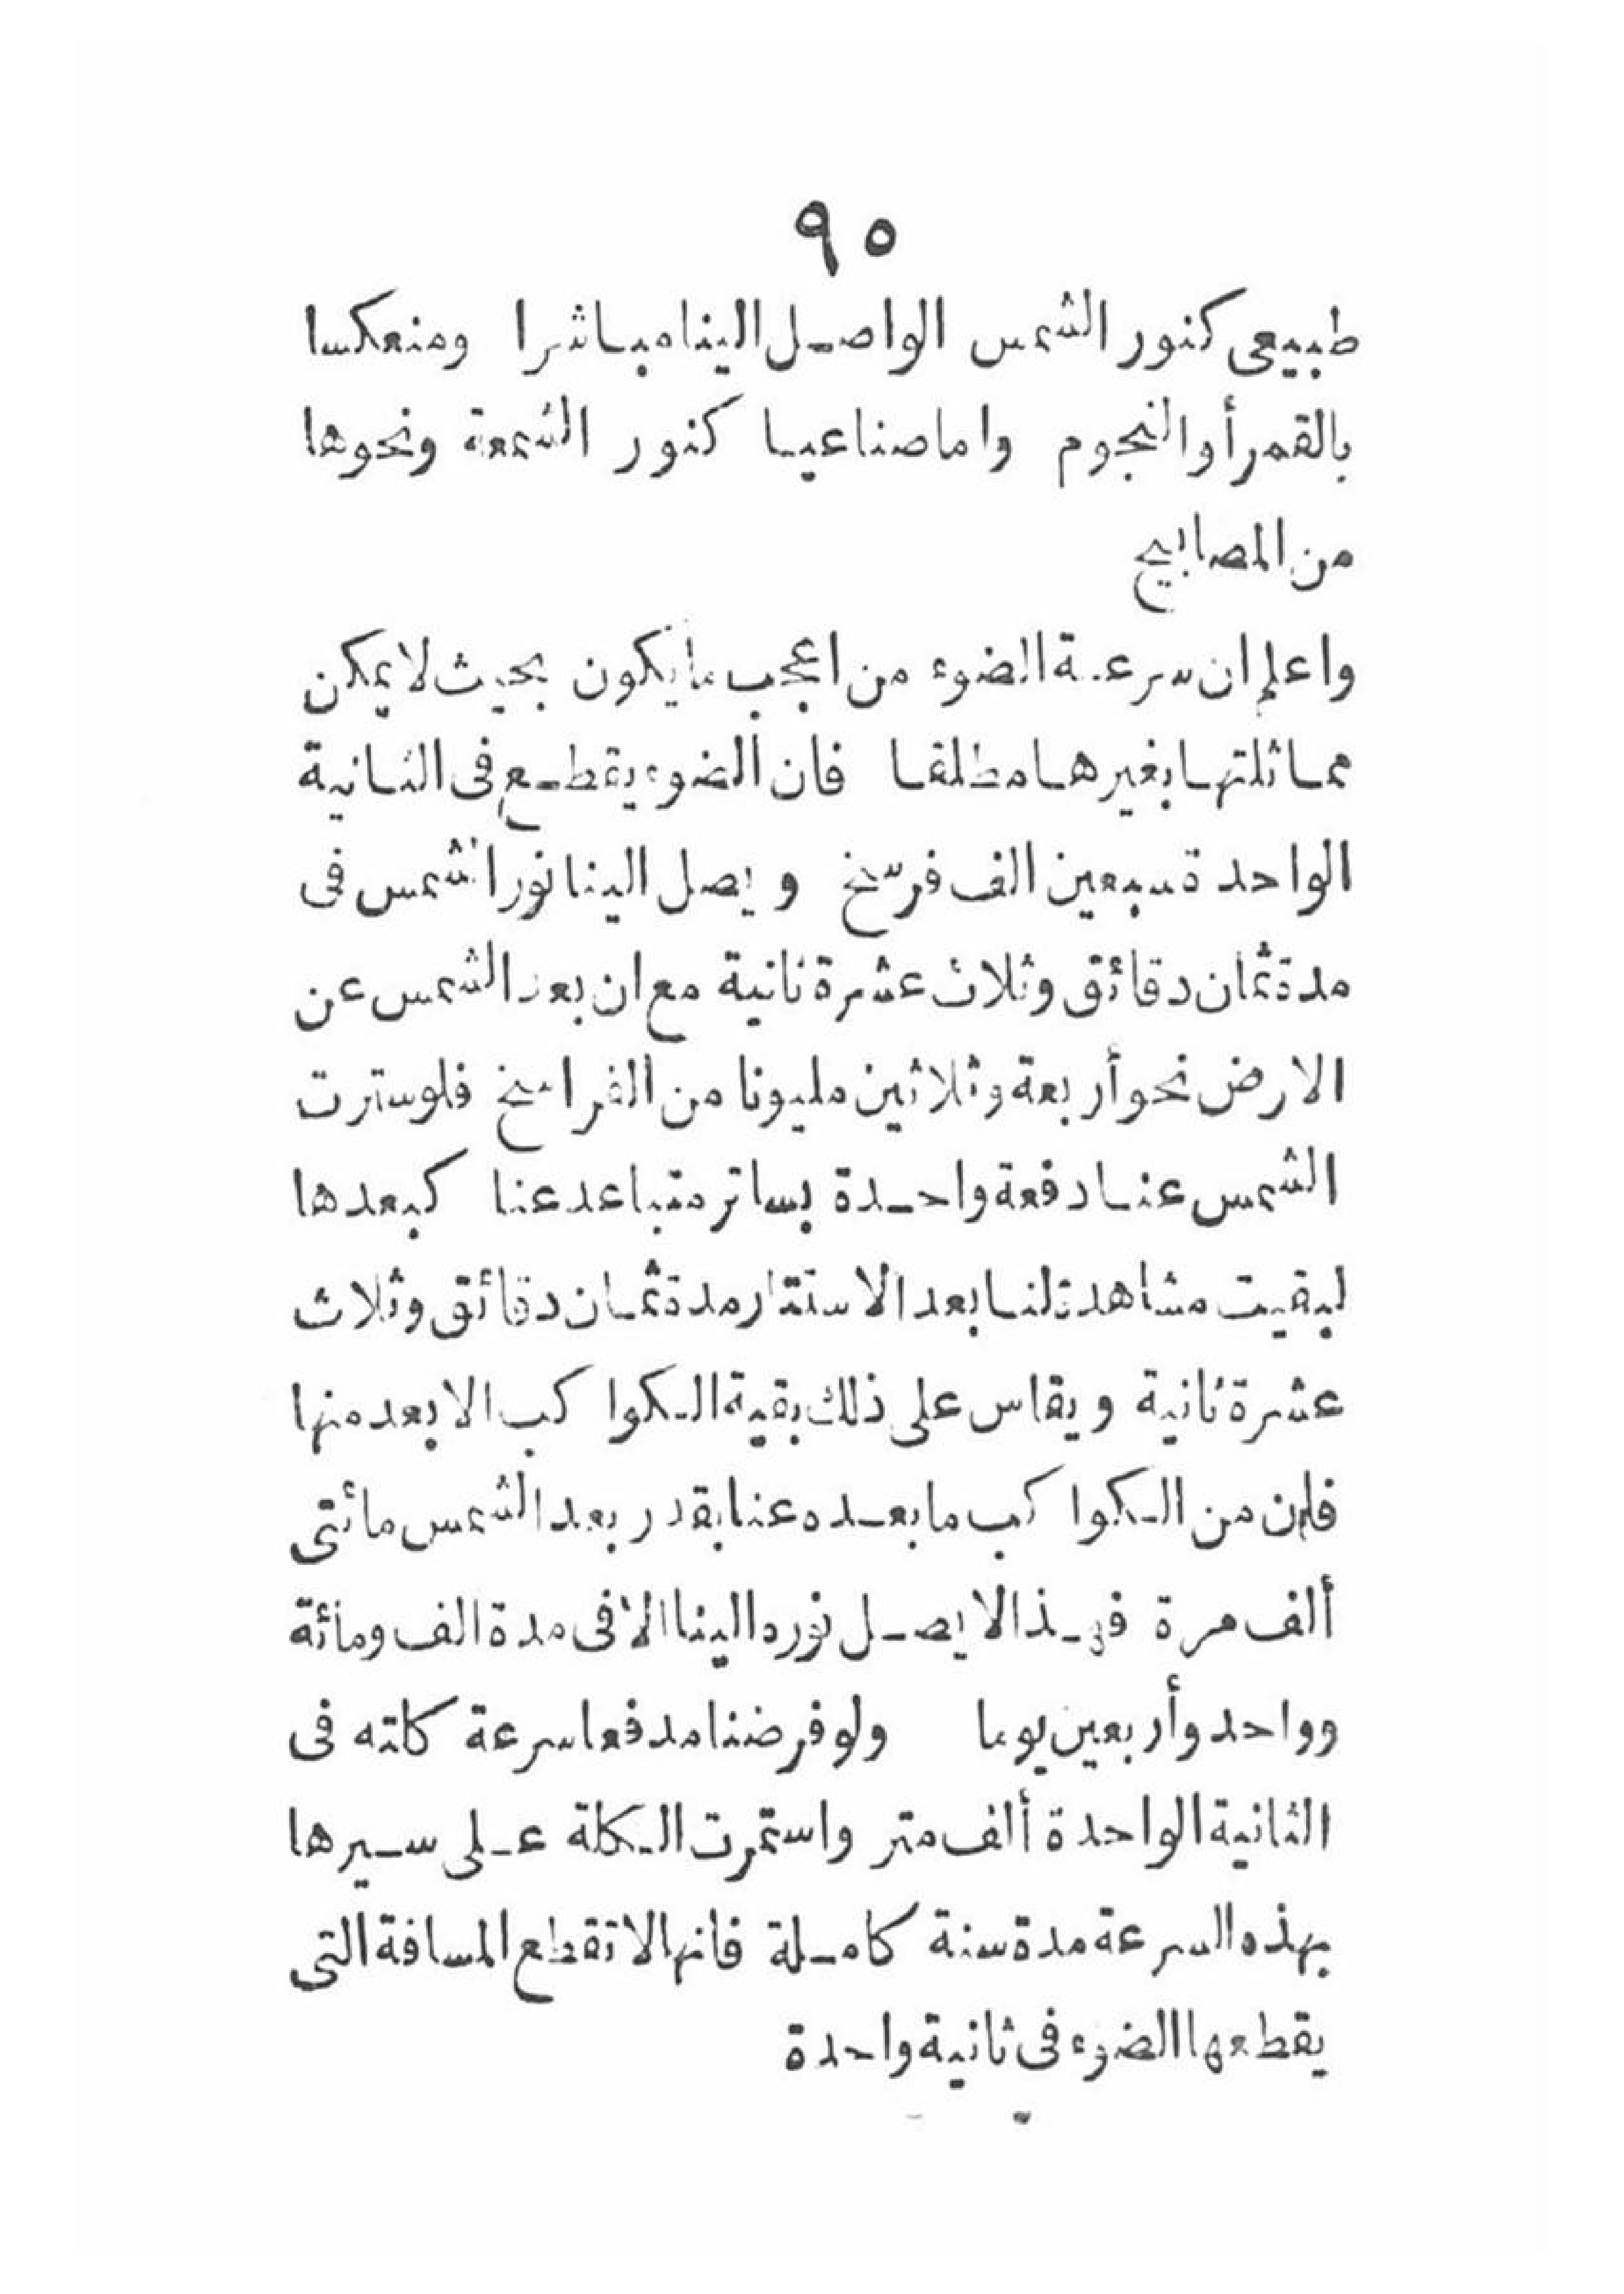 ٩٥
طبيعى كنور الشمس الواصل الينا مباشرا ومنعكسا
بالقمر أو النجوم واما صناعيا كنور الشمعة ونحوها
من المصابيح
واعلم ان سرعة الضوء من اعجب ما يكون بحيث لا يمكن
مماثلتها بغيرها مطلقا فان الضوء يقطع فى الثانية
الواحدة سبعين الف فرسخ ويصل الينا نور الشمس فى
مدة ثمان دقائق وثلاث عشرة ثانية مع ان بعد الشمس عن
الارض نحو أربعة وثلاثين مليونا من الفراسخ فلو سترت
الشمس عنا دفعة واحدة بساتر متباعد عنا كبعدها
لبقيت مشاهدة لنا بعد الاستتار مدة ثمان دقائق وثلاث
عشرة ثانية ويقاس على ذلك بقية الكواكب الابعد منها
فان من الكواكب ما بعده عنا بقدر بعد الشمس مائتى
ألف مرة فهذا لا يصل نوره الينا الا فى مدة الف ومائة
وواحد وأربعين يوما ولو فرضنا مدفعا سرعة كلته فى
الثانية الواحدة ألف متر واستمرت الكلة على سيرها
بهذه السرعة مدة سنة كاملة فانها لا تقطع المسافة التى
يقطعها الضوء فى ثانية واحدة